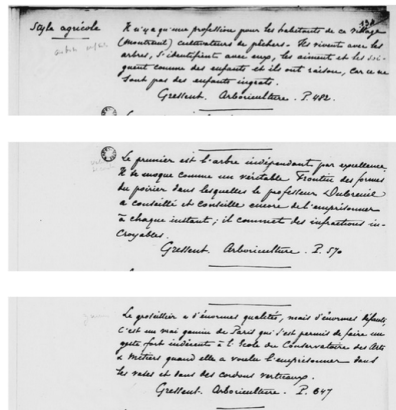 Style agricole
Il n'y a qu'une profession pour les habitants de ce village
(Montreuil) cultivateurs de pêchers. Ils vivent avec les
arbres, s'identifient avec eux, les aiment et les soi-
gnent comme des enfants et ils ont raison, car ce ne
sont pas des enfants ingrats.
Gressent. Arboriculture. P. 482.
Le prunier est l'arbre indépendant par excellence.
Il se moque comme un véritable Frontin des formes
du poirier dans lesquelles le professeur Dubreuil
a conseillé et conseille encore de l'emprisonner
à chaque instant ; il commet des infractions in-
croyables.
Gressent. Arboriculture. P. 570
Le groseillier a d'énormes qualités, mais d'énormes défauts,
C'est un vrai gamin de Paris qui s'est permis de faire un
geste fort indécent à l'école du Conservatoire des Arts
& Métiers quand elle a voulu l'emprisonner dans
les vases et dans des cordons verticaux.
Gressent. Arboriculture. P. 647